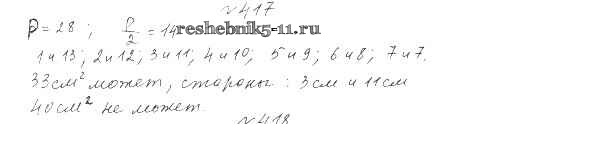 №417
P = 28 ; P/2 = 14 reshebnik5-11.ru
1 и 13 ; 2 и 12 ; 3 и 11 ; 4 и 10 ; 5 и 9 ; 6 и 8 ; 7 и 7.
33 см² может, стороны : 3 см и 11 см
40 см² не может.
№418